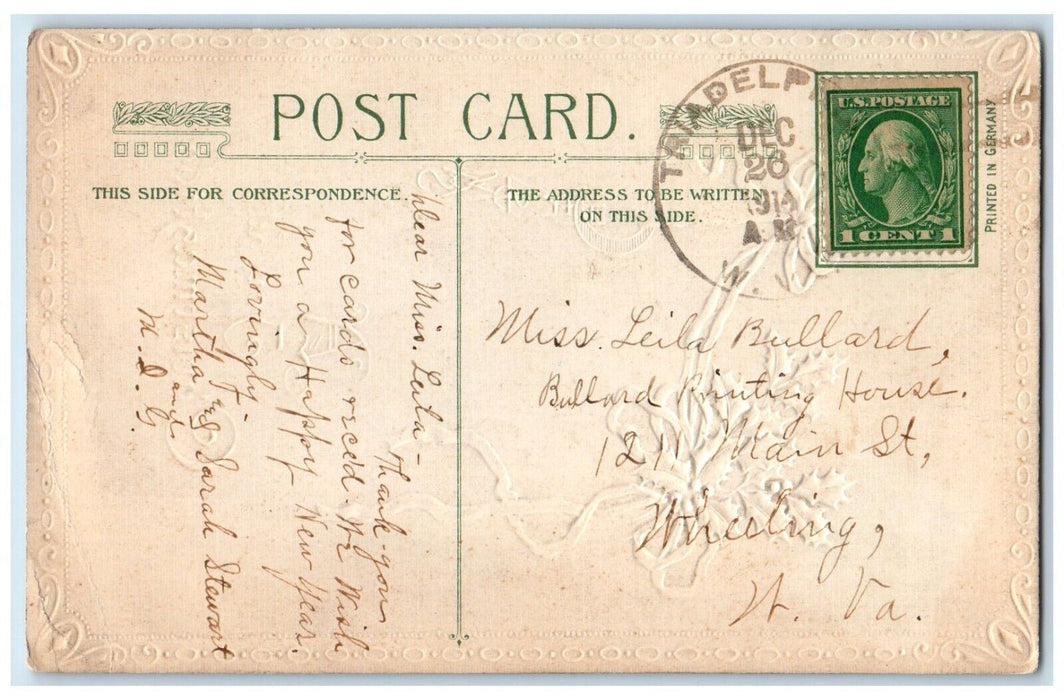 POST CARD.
THIS SIDE FOR CORRESPONDENCE.
THE ADDRESS TO BE WRITTEN
ON THIS SIDE.
TRIADELPH
DEC
26
1914
A.M.
W. VA.
U.S. POSTAGE
1 CENT 1
PRINTED IN GERMANY
Dear Miss. Leila-
Thank-you
for cards rec'ed. We Wish
you a Happy New Year.
Lovingly
Martha F. and Sarah Stewart
M. D. G.
Miss. Leila Bullard,
Bullard Printing House.
1211 Main St,
Wheeling,
W. Va.